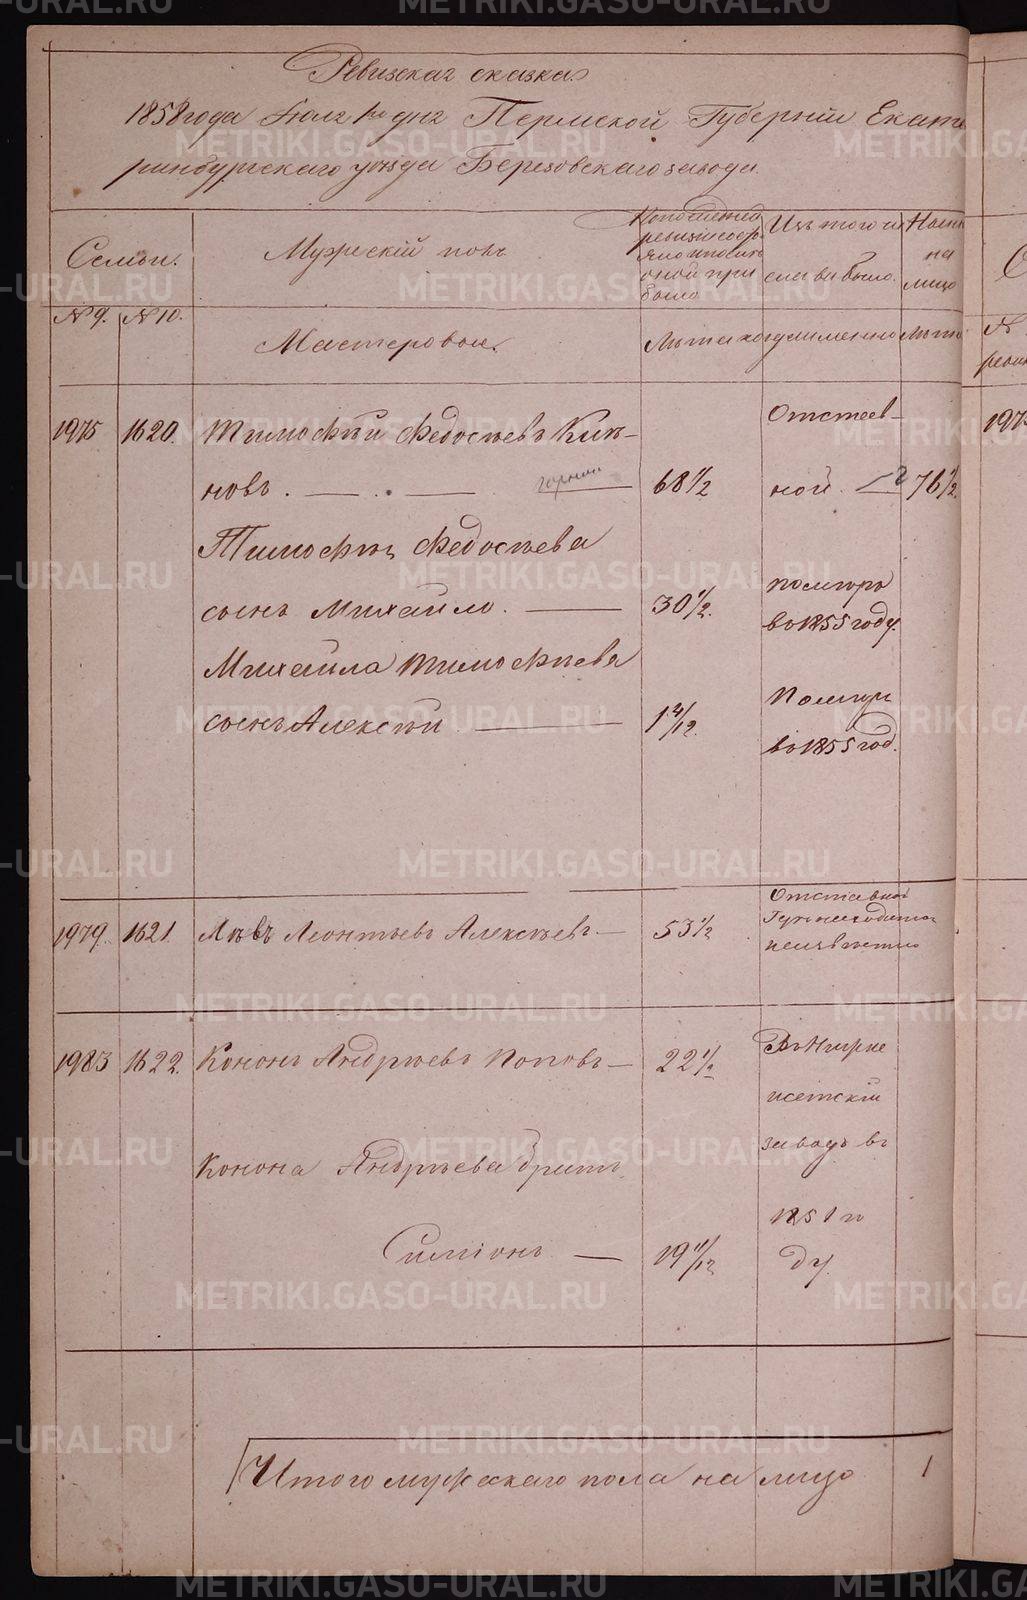 Ревизская сказка
1858 года Июля 1го дня Пермской Губернии Екате
ринбургскаго уезда Березовскаго завода.
Семьи.
Мужеский полъ
Изъ того чи
сла выбыло.
Ныне
на
лицо
№ 9. № 10.
Мастеровые.
Лета
когда именно
Лета
1975 1620. Тимофей Федосеевъ Кик-
новъ. 68 1/2
Отстав-
ной. 76 1/2.
Тимофея Федосеева
сынъ Михайло. 30 1/2.
помер
въ 1855 году.
Михайла Тимофеева
сынъ Алексей 1 4/12.
Помер
въ 1855 год.
1979. 1621. Левъ Леонтьевъ Алексеевъ 53 1/2
Отставной
неизвестно
1983 1622. Кононъ Андреевъ Поповъ 22 1/2
Въ Верхне
исетский
заводъ въ
1851 го
ду.
Конона Андреева братъ
Симионъ 19 11/12
Итого мужескаго пола на лицо 1
METRIKI.GASO-URAL.RU